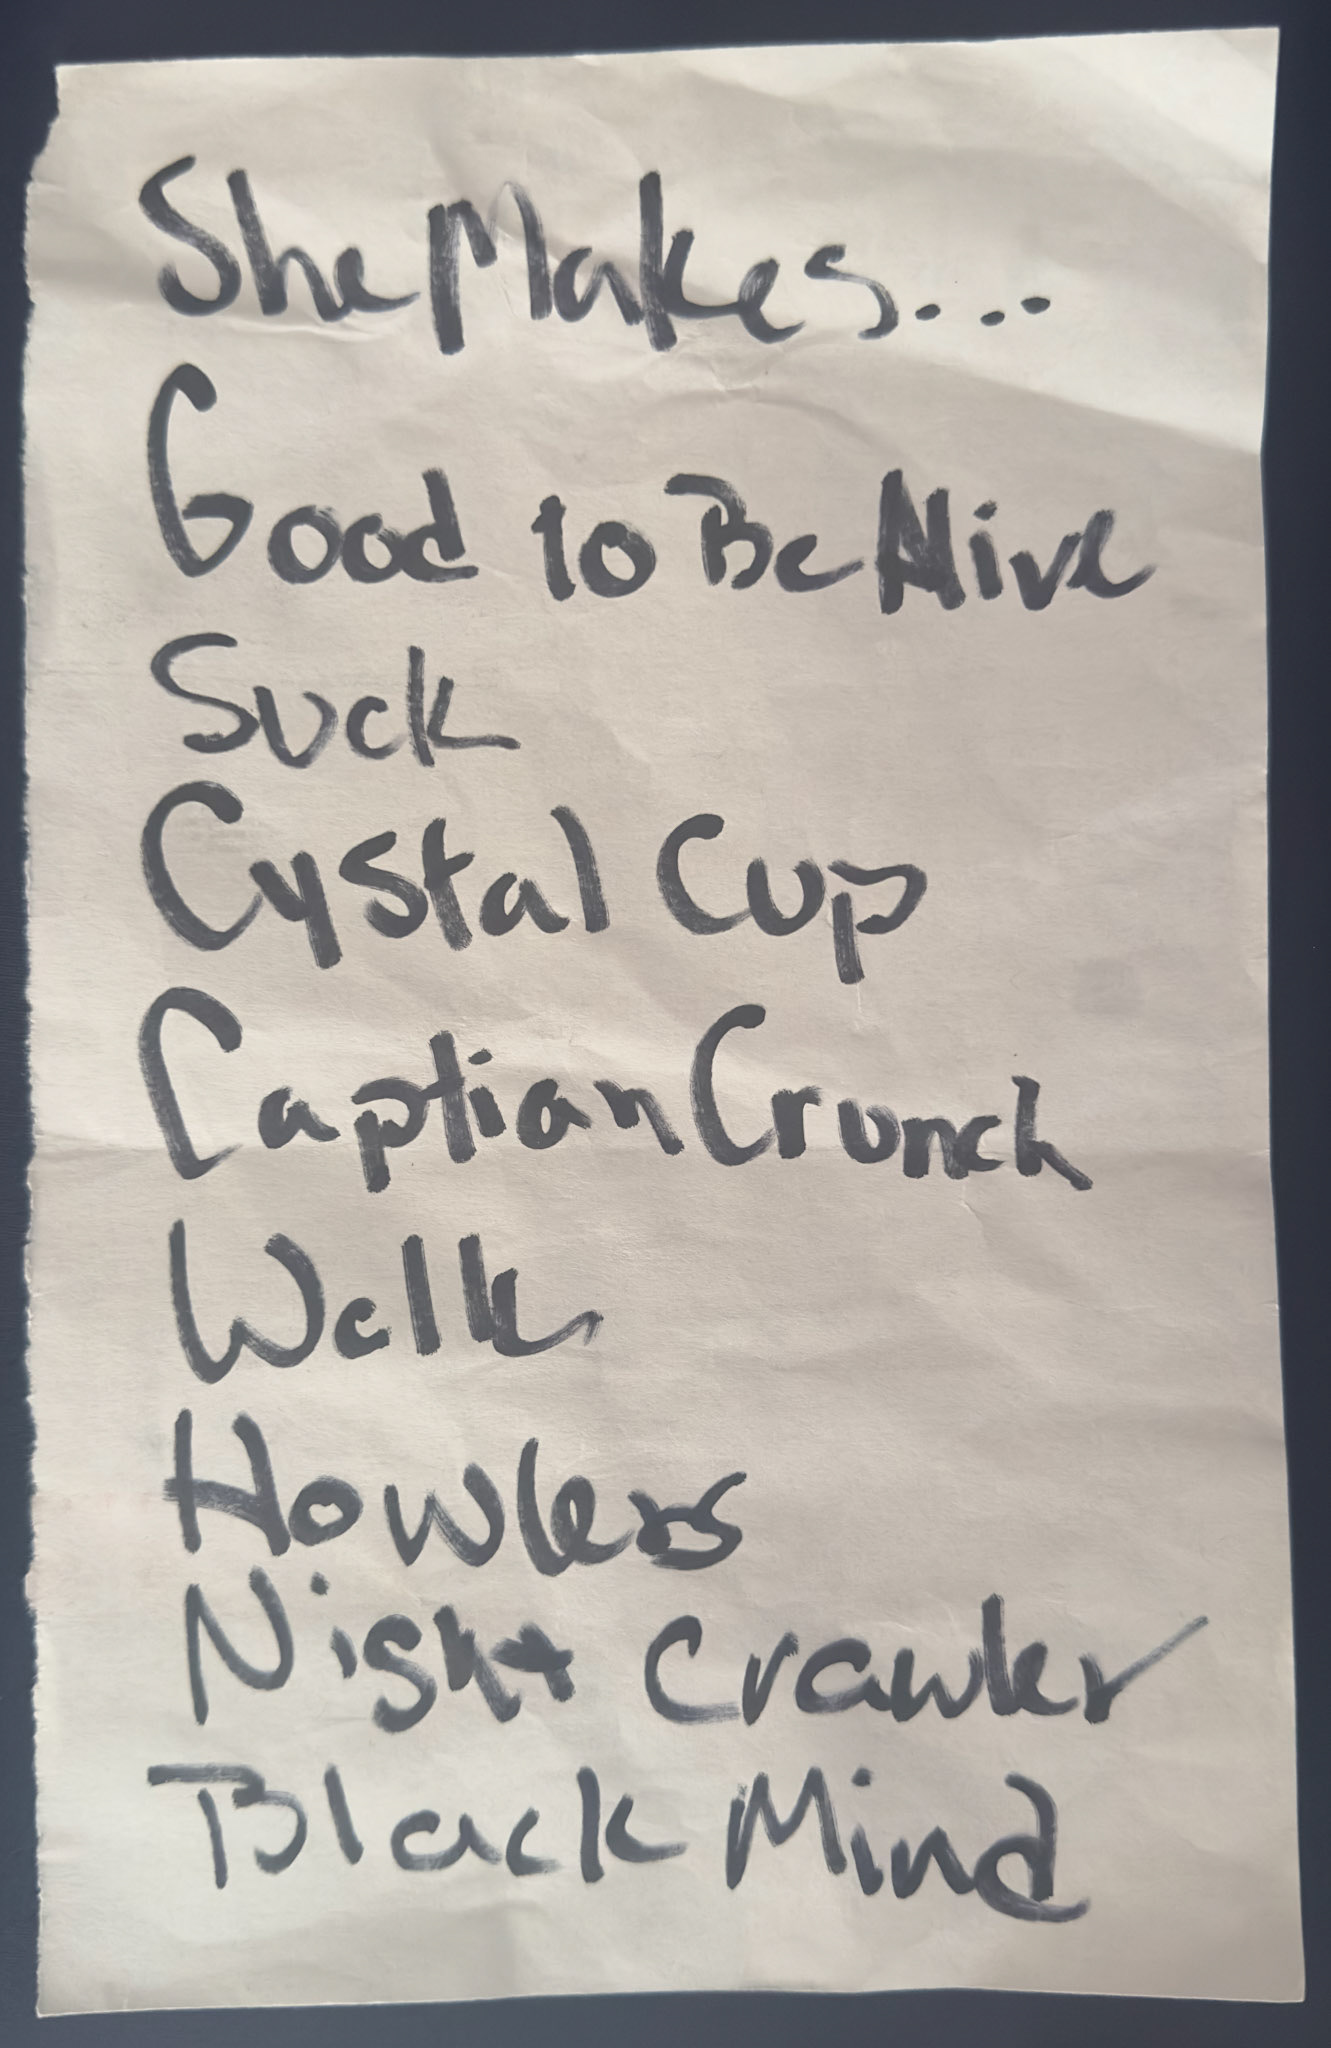 She Makes...
Good to Be Alive
Suck
Cystal Cup
Captian Crunch
Walk
Howlers
Night Crawler
Black Mind